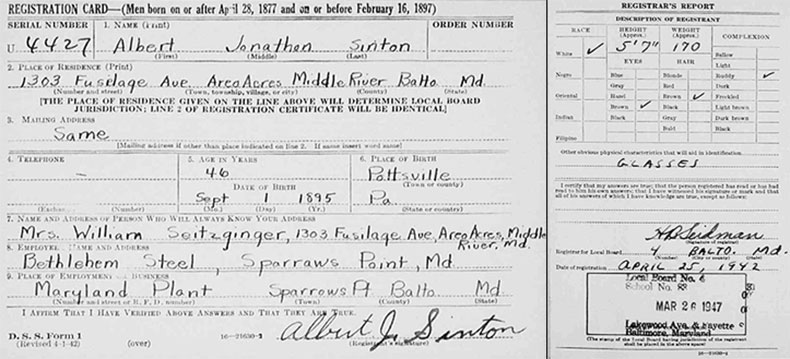 REGISTRATION CARD—(Men born on or after April 28, 1877 and on or before February 16, 1897)
SERIAL NUMBER
1. NAME (Print)
ORDER NUMBER
U 4427 Albert Jonathan Sinton
(First) (Middle) (Last)
2. PLACE OF RESIDENCE (Print)
1303 Fusilage Ave. Aero Acres Middle River Balto Md.
(Number and street) (Town, township, village, or city) (County) (State)
[THE PLACE OF RESIDENCE GIVEN ON THE LINE ABOVE WILL DETERMINE LOCAL BOARD
JURISDICTION; LINE 2 OF REGISTRATION CERTIFICATE WILL BE IDENTICAL]
3. MAILING ADDRESS
Same
[Mailing address if other than place indicated on line 2. If same insert word same]
4. TELEPHONE
5. AGE IN YEARS
6. PLACE OF BIRTH
-
46
Pottsville
(Town or county)
DATE OF BIRTH
Sept 1 1895
Pa.
(Exchange) (Number)
(Mo.) (Day) (Yr.)
(State or country)
7. NAME AND ADDRESS OF PERSON WHO WILL ALWAYS KNOW YOUR ADDRESS
Mrs. William Seitzginger, 1303 Fusilage Ave, Aero Acres, Middle
River, Md.
8. EMPLOYER'S NAME AND ADDRESS
Bethlehem Steel, Sparraws Point, Md.
9. PLACE OF EMPLOYMENT OR BUSINESS
Maryland Plant Sparrows Pt Balto Md
(Number and street or R. F. D. number) (Town) (County) (State)
I AFFIRM THAT I HAVE VERIFIED ABOVE ANSWERS AND THAT THEY ARE TRUE.
D. S. S. Form 1
(Revised 4-1-42) (over)
16—21630-2
Albert J. Sinton
(Registrant's signature)
REGISTRAR'S REPORT
DESCRIPTION OF REGISTRANT
RACE
HEIGHT
(Approx.)
WEIGHT
(Approx.)
COMPLEXION
White ✓
5'7"
170
Sallow
Light
EYES
HAIR
Ruddy ✓
Negro
Blue
Blonde
Dark
Gray
Red
Freckled
Oriental
Hazel
Brown ✓
Light brown
Brown ✓
Black
Dark brown
Indian
Black
Gray
Black
Bald
Filipino
Other obvious physical characteristics that will aid in identification
GLASSES
I certify that my answers are true; that the person registered has read or has had
read to him his own answers; that I have witnessed his signature or mark and that
all of his answers of which I have knowledge are true, except as follows:
(Signature of registrar)
Registrar for Local Board 4 BALTO. Md.
(Number) (City or county) (State)
Date of registration APRIL 25, 1942
Local Board No.
School No.
MAR 26 1947
Lakewood Ave. & Fayette
Baltimore, Maryland
(The stamp of the Local Board having jurisdiction of the registrant
shall be placed in the above space)
16—21630-2